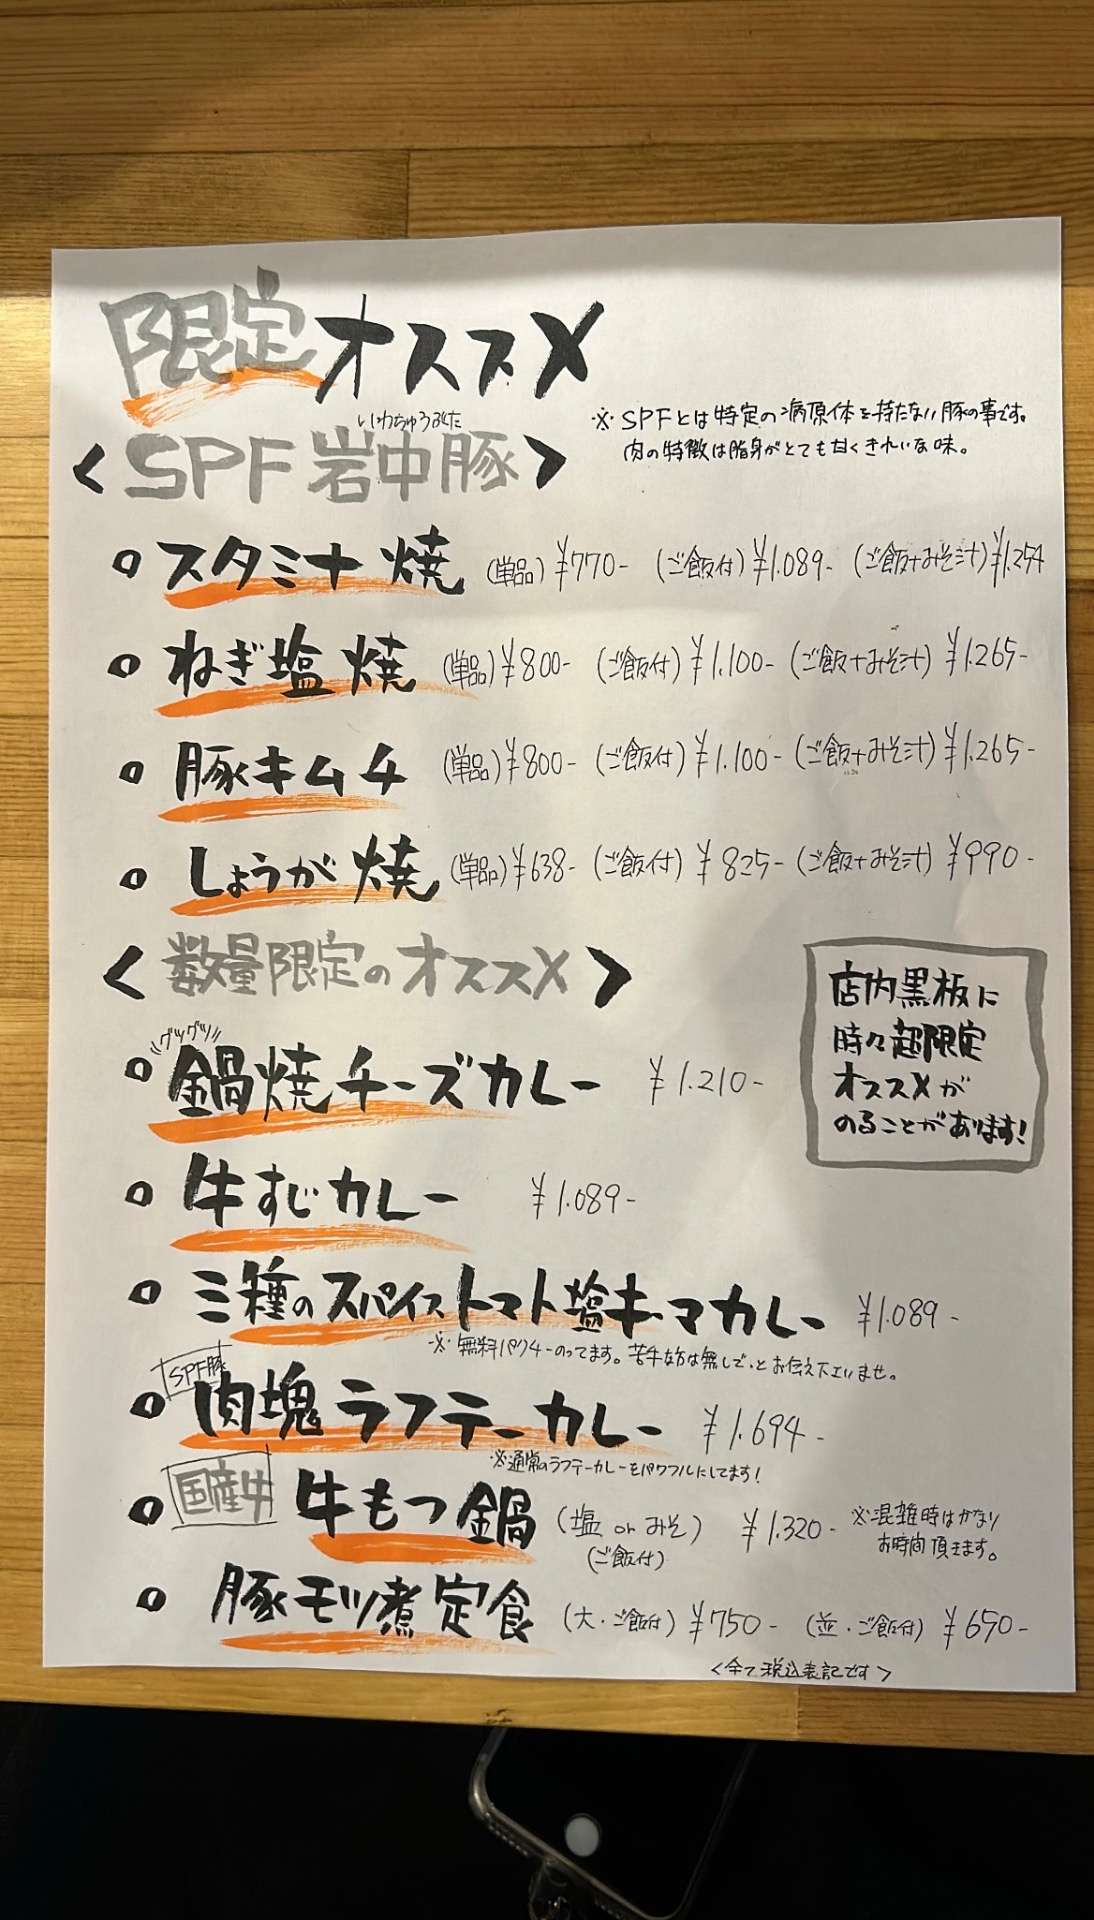 限定オススメ
いわちゅうぶた
<SPF 岩中豚>
※SPFとは特定の病原体を持たない豚の事です。
肉の特徴は脂身がとても甘くきれいな味。
○スタミナ焼 (単品)¥770- (ご飯付)¥1.089- (ご飯+みそ汁)¥1.254
○ねぎ塩焼 (単品)¥800- (ご飯付)¥1.100- (ご飯+みそ汁)¥1.265-
○豚キムチ (単品)¥800- (ご飯付)¥1.100- (ご飯+みそ汁)¥1.265-
○しょうが焼 (単品)¥638- (ご飯付)¥825- (ご飯+みそ汁)¥990-
<数量限定のオススメ>
店内黒板に
時々超限定
オススメが
のることがあります!
グツグツ
○鍋焼チーズカレー ¥1.210-
○牛すじカレー ¥1.089-
○三種のスパイストマト塩キーマカレー ¥1.089-
※無料パクチーのってます。苦手な方は無しで、とお伝え下さいませ。
SPF豚
○肉塊ラフテーカレー ¥1.694-
※通常のラフテーカレーをパワフルにしてます!
○国産牛 牛もつ鍋 (塩 or みそ) ¥1.320- ※混雑時はかなり
(ご飯付) お時間頂きます。
○豚モツ煮定食 (大・ご飯付)¥750- (並・ご飯付)¥650-
<全て税込表記です>